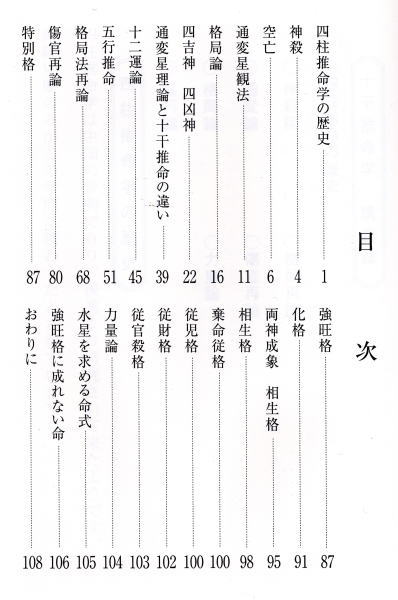 目次
四柱推命学の歴史 1
神殺 4
空亡 6
通変星観法 11
格局論 16
四吉神 四凶神 22
通変星理論と十干推命の違い 39
十二運論 45
五行推命 51
格局法再論 68
傷官再論 80
特別格 87
強旺格 87
化格 91
両神成象 相生格 95
相生格 98
棄命従格 100
従児格 100
従財格 102
従官殺格 103
力量論 104
水星を求める命式 105
強旺格に成れない命 106
おわりに 108